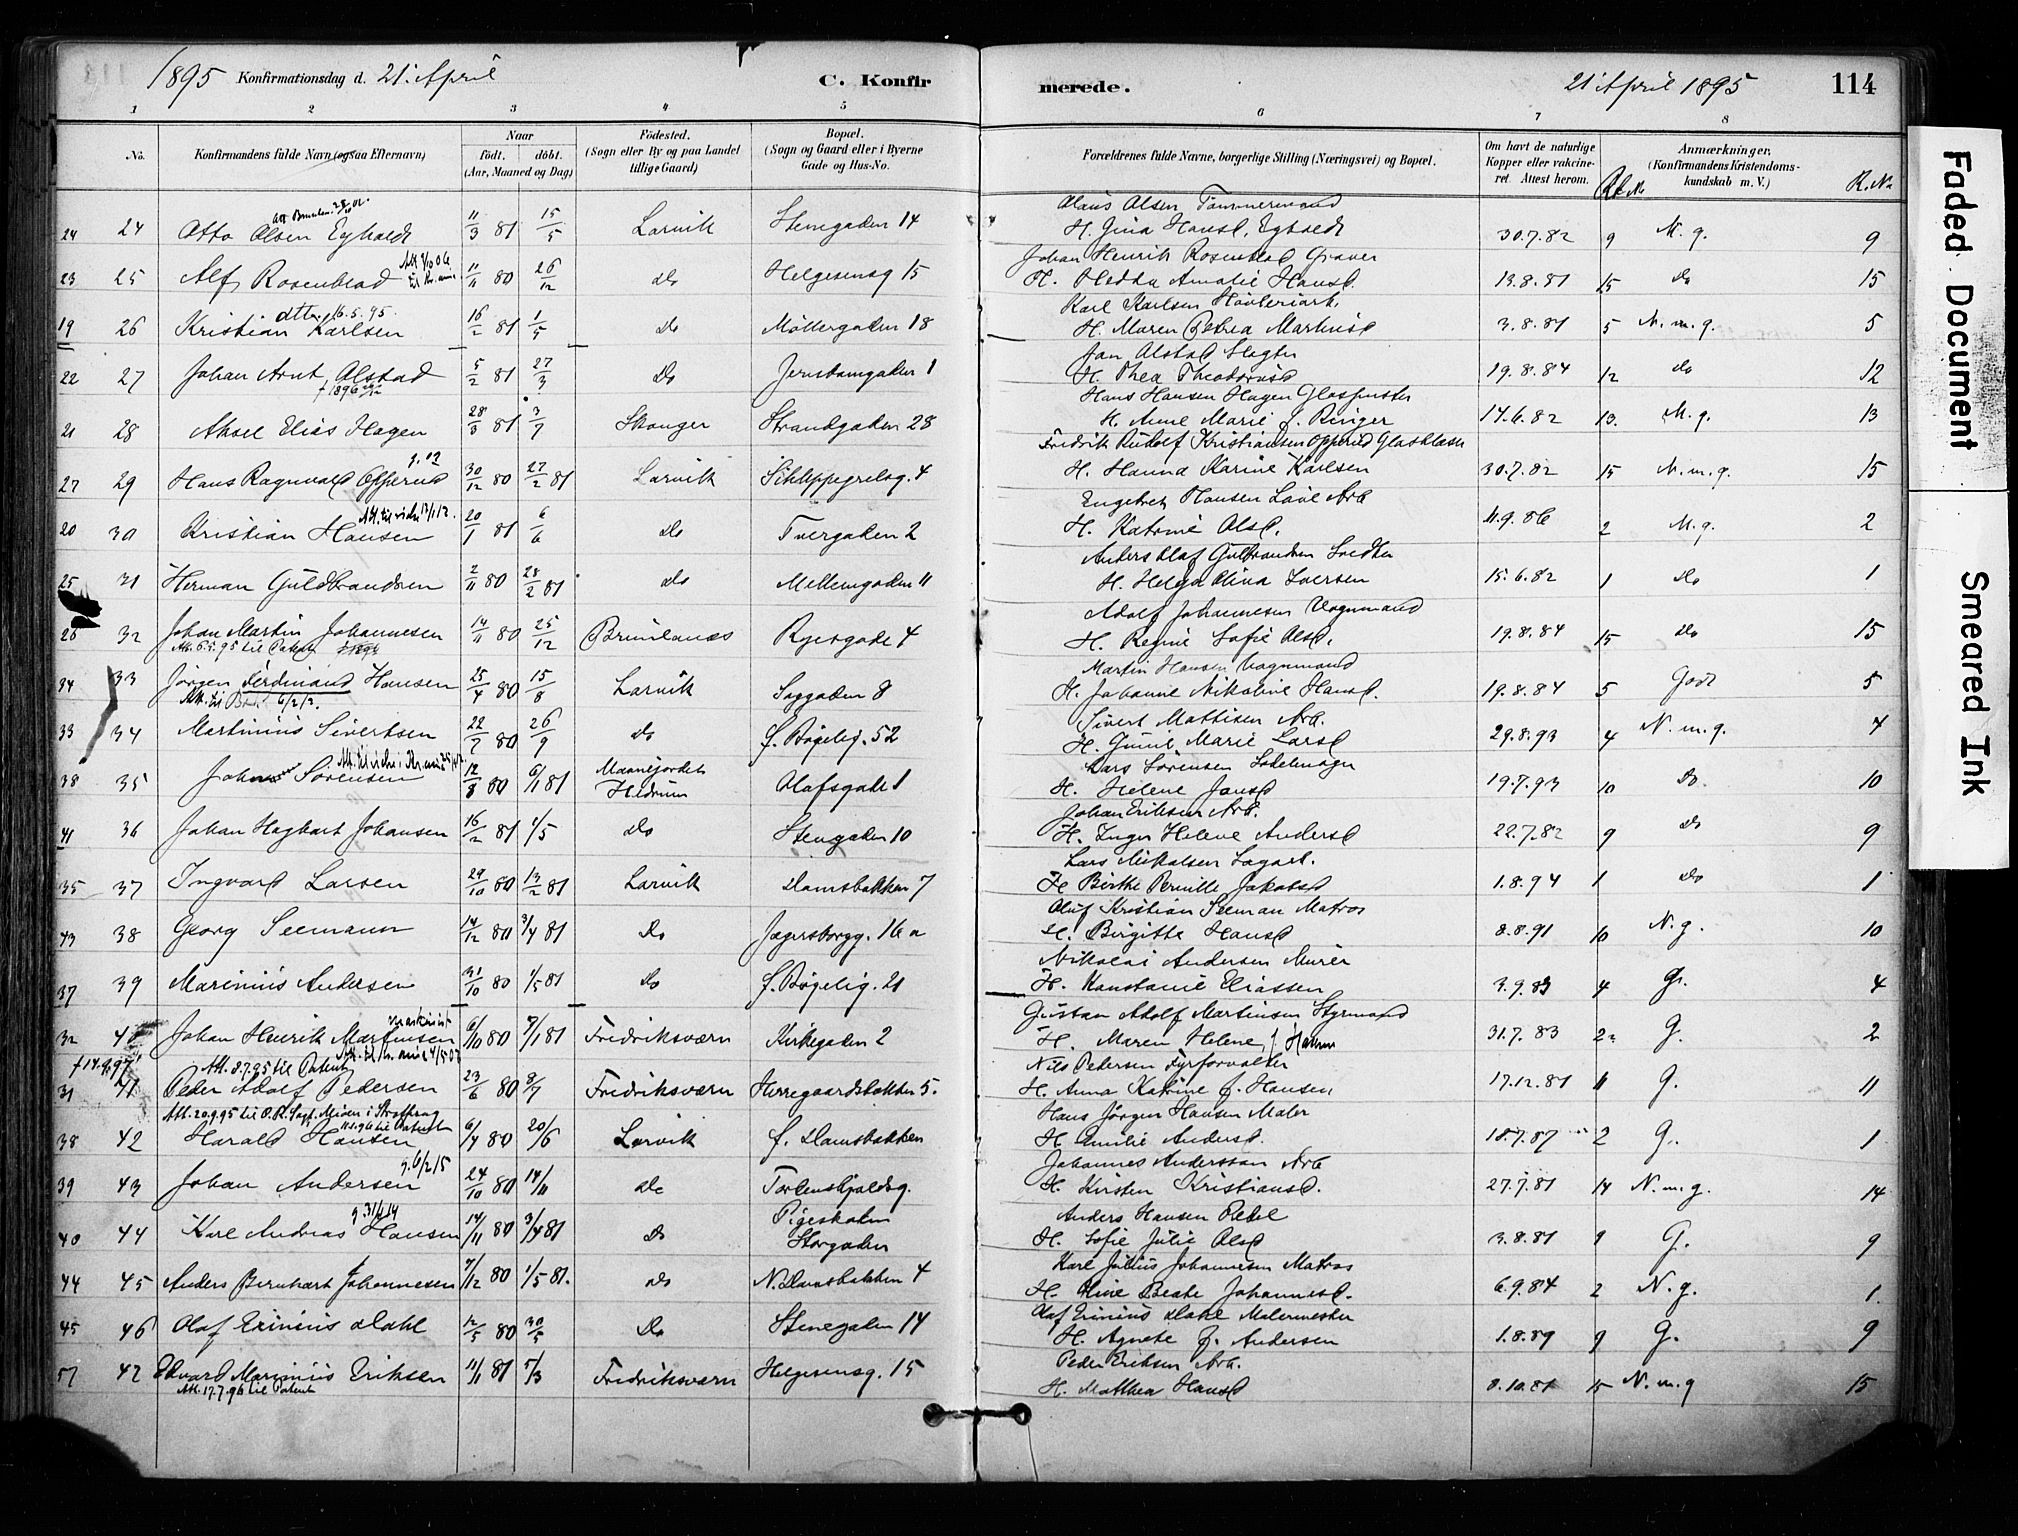 1895 Konfirmationsdag d. 21. April C. Konfir merede. 21 April 1895 114
1 2 3 4 5 6 7 8
No. Konfirmandens fulde Navn (ogsaa Efternavn) Naar født. døbt. (Aar, Maaned og Dag) Fødested. (Sogn eller By og paa Landet tillige Gaard) Bopæl. (Sogn og Gaard eller i Byerne Gade og Hus-No. Forældrenes fulde Navne, borgerlige Stilling (Næringsvei) og Bopæl. Om havt de naturlige Kopper eller vakcineret. Attest herom. Anmærkninger, (Konfirmandens Kristendomskundskab m. V.) R. No.
24 24 Otto Olsen Egholdt 11/3 81 15/5 Larvik Stenegaden 14 Olaus Olsen Tømmermand
H. Gina Hansd. Egholdt 30.7.82 9 M. g. 9
23 25 Alf Rosenblad 11/11 80 26/12 do Helgesensg 15 Johan Henrik Rosenblad Graver
H. Hedda Amalie Hansd. 13.8.81 15 do 15
dtto. 16.5.95.
19 26 Kristian Karlsen 16/2 81 1/5 do Møllergaden 18 Karl Karlsen
H. Maren Petrea Martinsd 3.8.81 5 N. m. g. 5
22 27 Johan Arnt Alstad 5/2 81 27/3 do Jernbanegaden 1 Jan Alstad Slagter
H. Thea Theodorsd 19.8.84 12 do 12
21 28 Aksel Elias Hagen 28/3 81 3/7 Skonger Strandgaden 28 Hans Hansen Hagen Glaspuster
H. Anne Marie f. Ringer 14.6.82 13. M. g. 13
27 29 Hans Ragnvald Opperud 30/12 80 27/2 81 Larvik Schleppegrelsg. 4 Fredrik Rudolf Kristiansen Opperud
H. Hanna Karine Karlsen 30.7.82 15 N. m. g. 15
20 30 Kristian Hansen 20/1 81 6/6 do Tvergaden 2 Engebret Hansen Løve Arb
H. Katrine Olsd. 11.9.86 2 M. g. 2
25 31 Herman Guldbrandsen 2/11 80 28/2 81 do Mellemgaden 11 Anders Olaf Guldbrandsen
H. Helga Olina Iversen 15.6.82 1 do 1
26 32 Johan Martin Johannesen 14/11 80 25/12 Brunlanes Ryersgade 4 Adolf Johannesen Vognmand
Att. 5.5.95 til Patent
H. Regine Sofie Olsd. 19.8.84 15 do 15
34 33 Jørgen Ferdinand Hansen 25/4 80 15/8 Larvik Saggaden 8 Martin Hansen Vognmand
H. Johanne Nikoline Hansd. 19.8.84 5 Godt 5
33 34 Martinius Sivertsen 22/7 80 26/9 do f. Bøgelig. 52 Sivert Mattisen Arb.
H. Gunil Marie Larsd 29.8.93 4 N. m. g. 4
38 35 Johan Sørensen 12/8 80 6/1 81 Maanejordet Hedrum Olafsgade 1 Lars Sørensen Sadelmager
H. Helene Jansd 19.7.93 10 do. 10
41 36 Johan Hagbart Johansen 16/2 81 1/5 do Stengaden 10 Johan Eriksen Arb.
H. Inger Helene Andersd 22.7.82 9 do 9
35 37 Ingvard Larsen 29/10 80 13/2 81 Larvik Damsbakken 7 Lars Mikalsen Sagarb.
H Birthe Pernille Jakobsd 1.8.94 1 do 1
43 38 Georg Seemann 14/12 80 3/4 81 do Jægersborgg. 16 a Oluf Kristian Seeman Matros
H. Birgitte Hansd 8.8.91 10 N. g. 10
37 39 Marinius Andersen 31/10 80 1/5 81 do f. Bøgelig. 21 Nikolai Andersen Murer
H. Konstanse Eliassen 3.9.83 4 G. 4
32 40 Johan Henrik Martinsen 6/10 80 7/1 81 Fredriksværn Kirkegaden 2 Gustav Adolf Martinsen Styrmand
H. Maren Helene f. Hansen 31.7.83 2 G. 2
† 14.9.97 Att. 8.7.95 til Patent
31 41 Peder Adolf Pedersen 23/6 80 8/7 Fredriksværn Herregaardsbakken 5. Nils Pedersen Fyrforvalter
H. Anna Katrine f. Hansen 17.12.81 11 G. 11
38 42 Harald Hansen 6/4 80 20/6 Larvik f. Damsbakken Hans Jørgen Hansen Maler
H. Emilie Andersd. 18.7.87 2 G. 1
g. 6/2/5
39 43 Johan Andersen 24/10 80 14/11 do Torbenskjoldsg. Johannes Anderssøn Arb
H. Kirsten Kristiansd. 27.7.81 14 N. m. g. 14
40 44 Karl Andreas Hansen 14/11 80 3/4 81 do Pigeskolen Storgaden Anders Hansen Pedel
H. Sofie Julie Olsd 3.8.81 9 G. 9
44 45 Anders Bernhart Johannesen 7/12 80 1/5 81. do N. Damsbakken 4 Karl Julius Johannesen Matros
H. Oline Beate Johannesd. 6.9.84 2 N. g. 1.
45 46 Olaf Erinius Dahl 12/5 80 30/5 do Stenegaden 14 Olaf Erinius Dahl Malermester
H. Agnete f. Andersen 1.8.89 9 G. 9
57 42 Edvard Marinius Eriksen 11/1 81 7/3 Fredriksværn Helgesensg. 15 Peder Eriksen Arb.
Att. 17.7.96 til Patent
H. Matthea Hansd 8.10.81 15 N. m. g 15
Faded Document
Smeared Ink